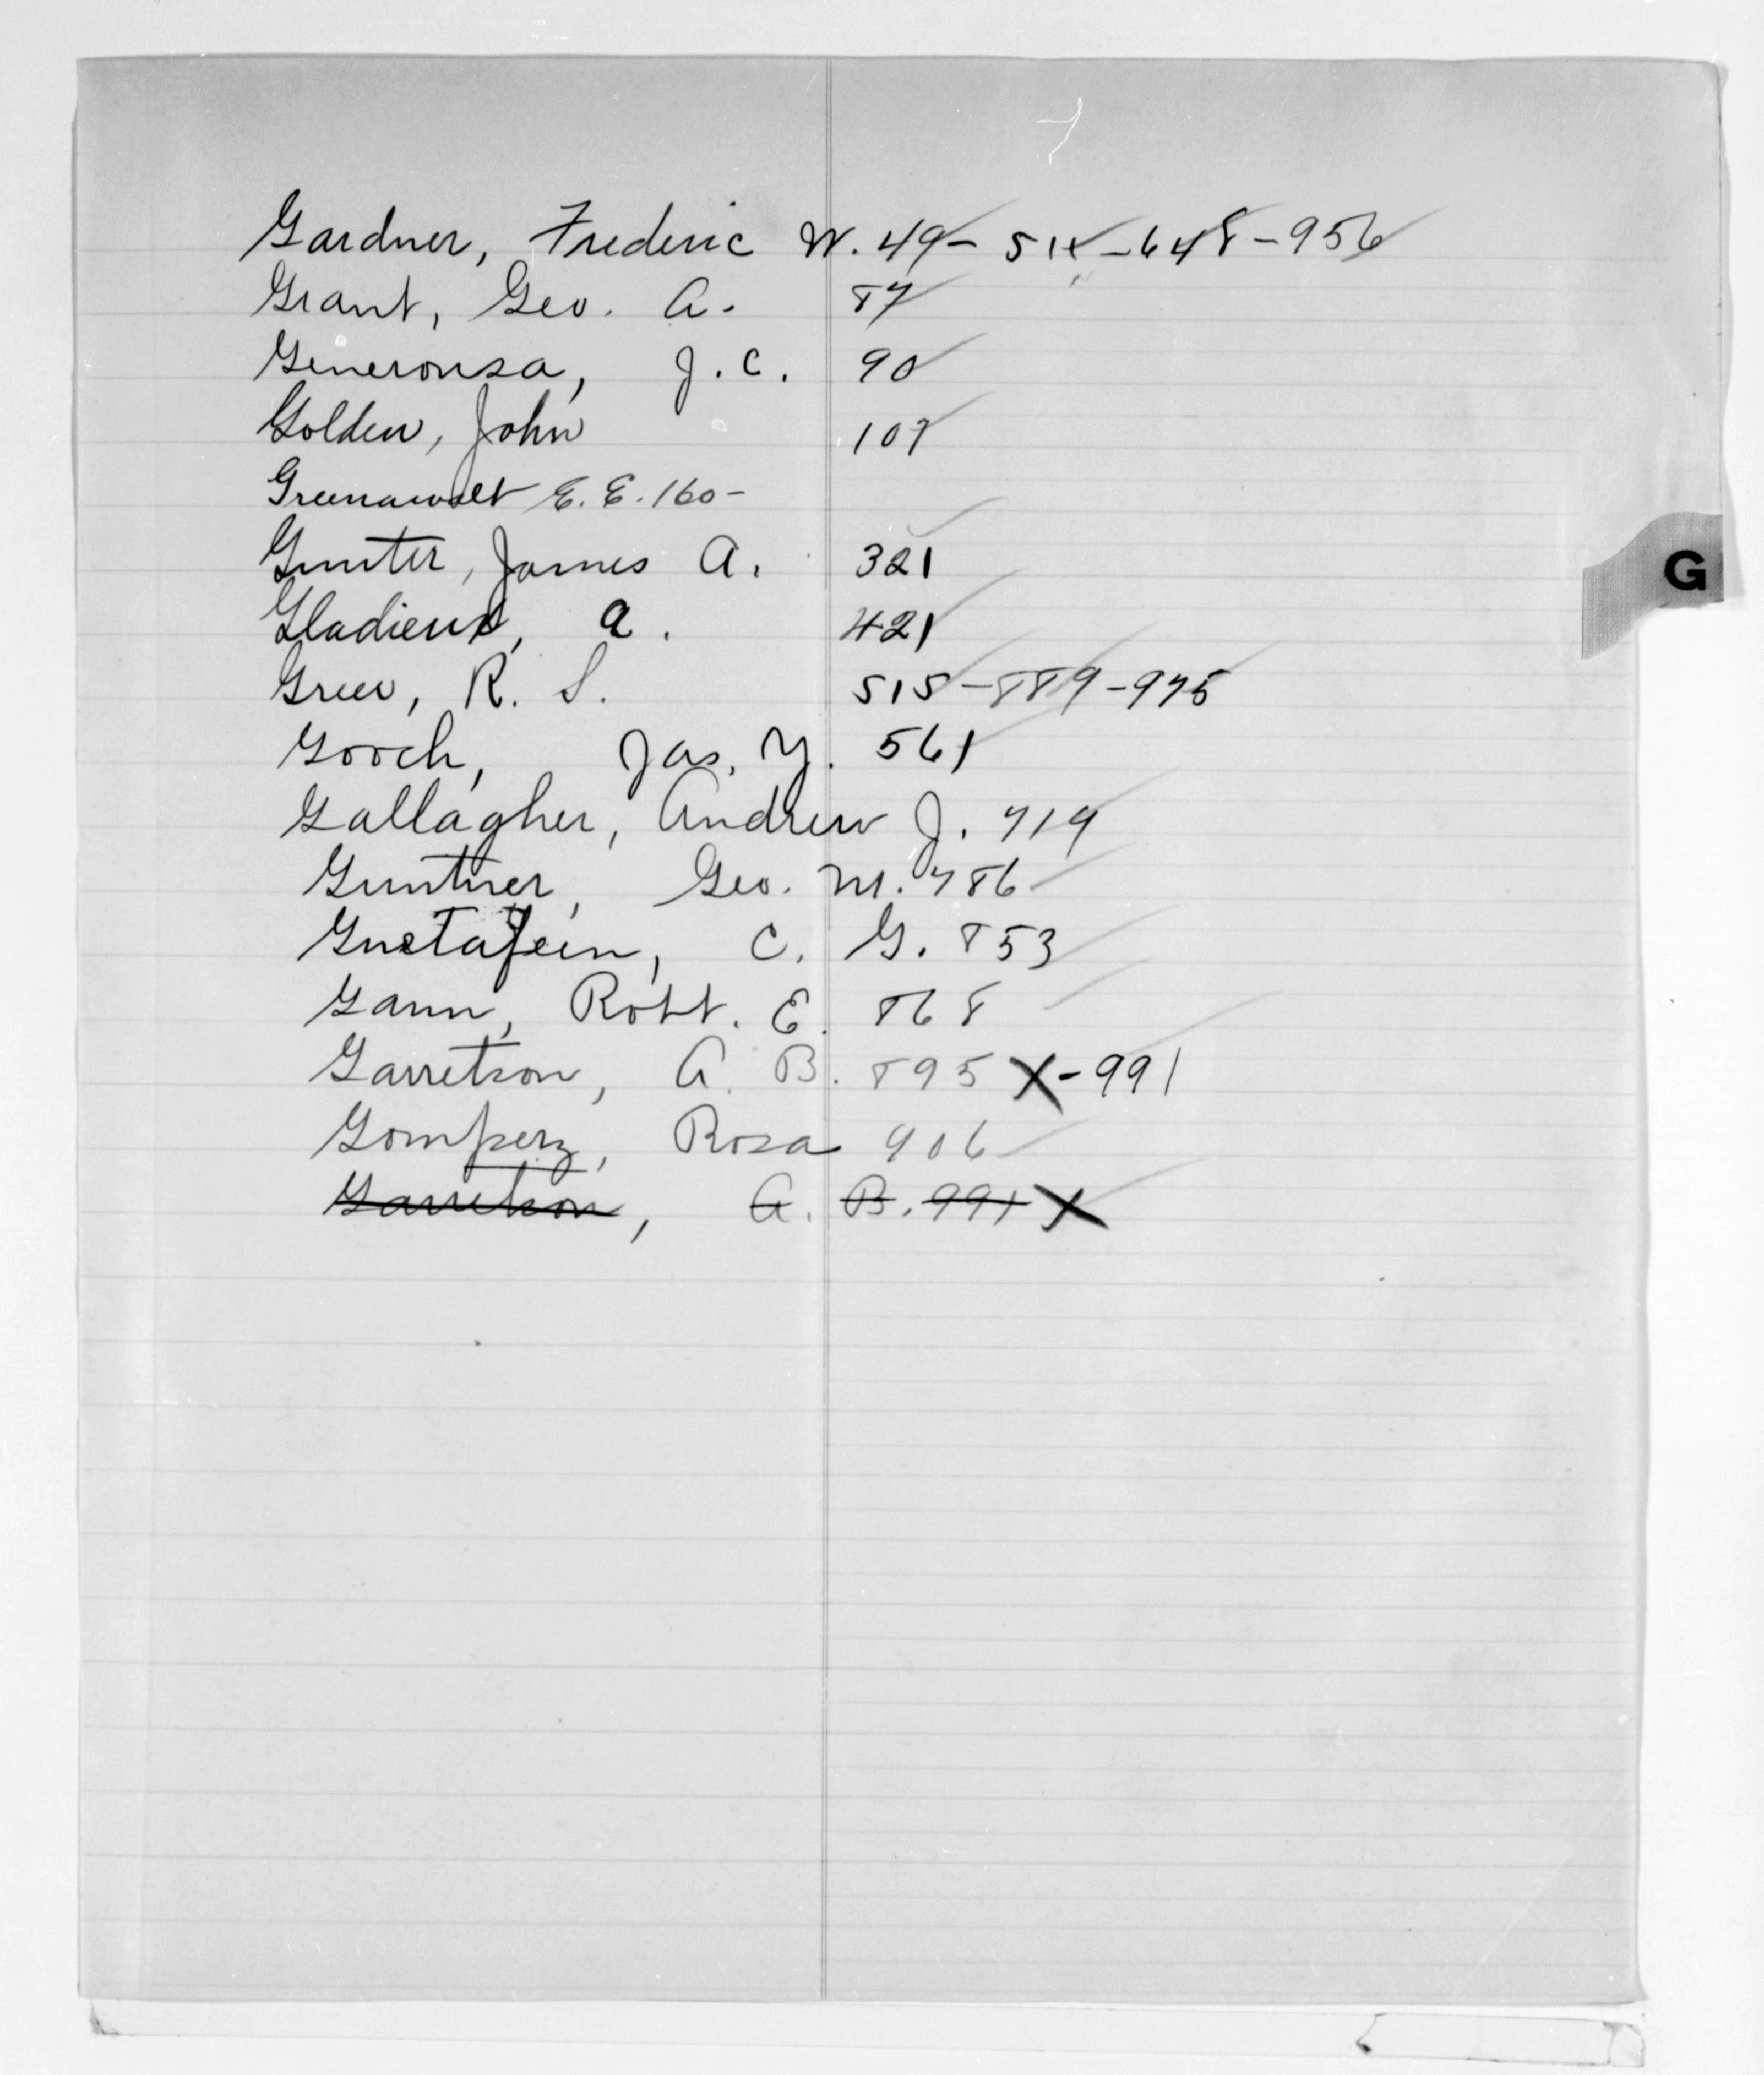 Gardner, Frederic W. 49 - 514 - 648 - 956
Grant, Geo. A. 87
Generonsa, J. C. 90
Golden, John 107
Greenawalt E. E. 160 -
G
Gunter, James A. 321
Gladieux, A. 421
Green, R. S. 515 - 889 - 975
Gooch, Jas. Y. 561
Gallagher, Andrew J. 719
Guntner, Geo. M. 786
Gustafein, C. G. 853
Gann, Robt. E. 868
Garretson, A. B. 895 X - 991
Gomperz, Rosa 906
Garretson, A. B. 991 X